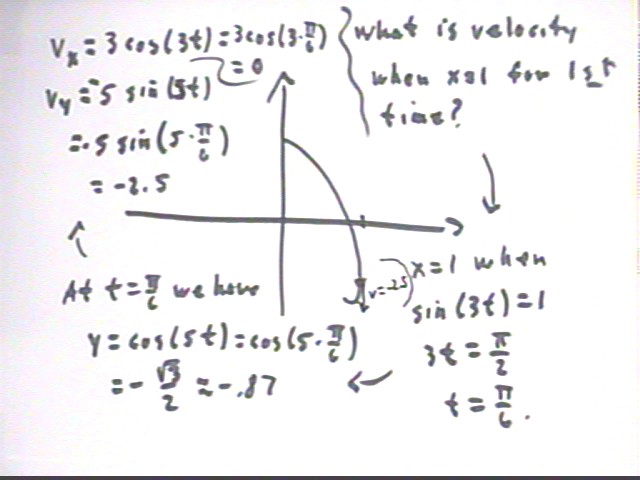 Vx = 3 cos(3t) = 3cos(3·π/6)
= 0
Vy = -5 sin(5t)
= -5 sin(5·π/6)
= -2.5
What is velocity
when x=1 for 1st
time?
x=1 when
sin(3t)=1
3t = π/2
t = π/6.
At t = π/6 we have
y = cos(5t) = cos(5·π/6)
= -√3/2 ≈ -.87
v=-2.5